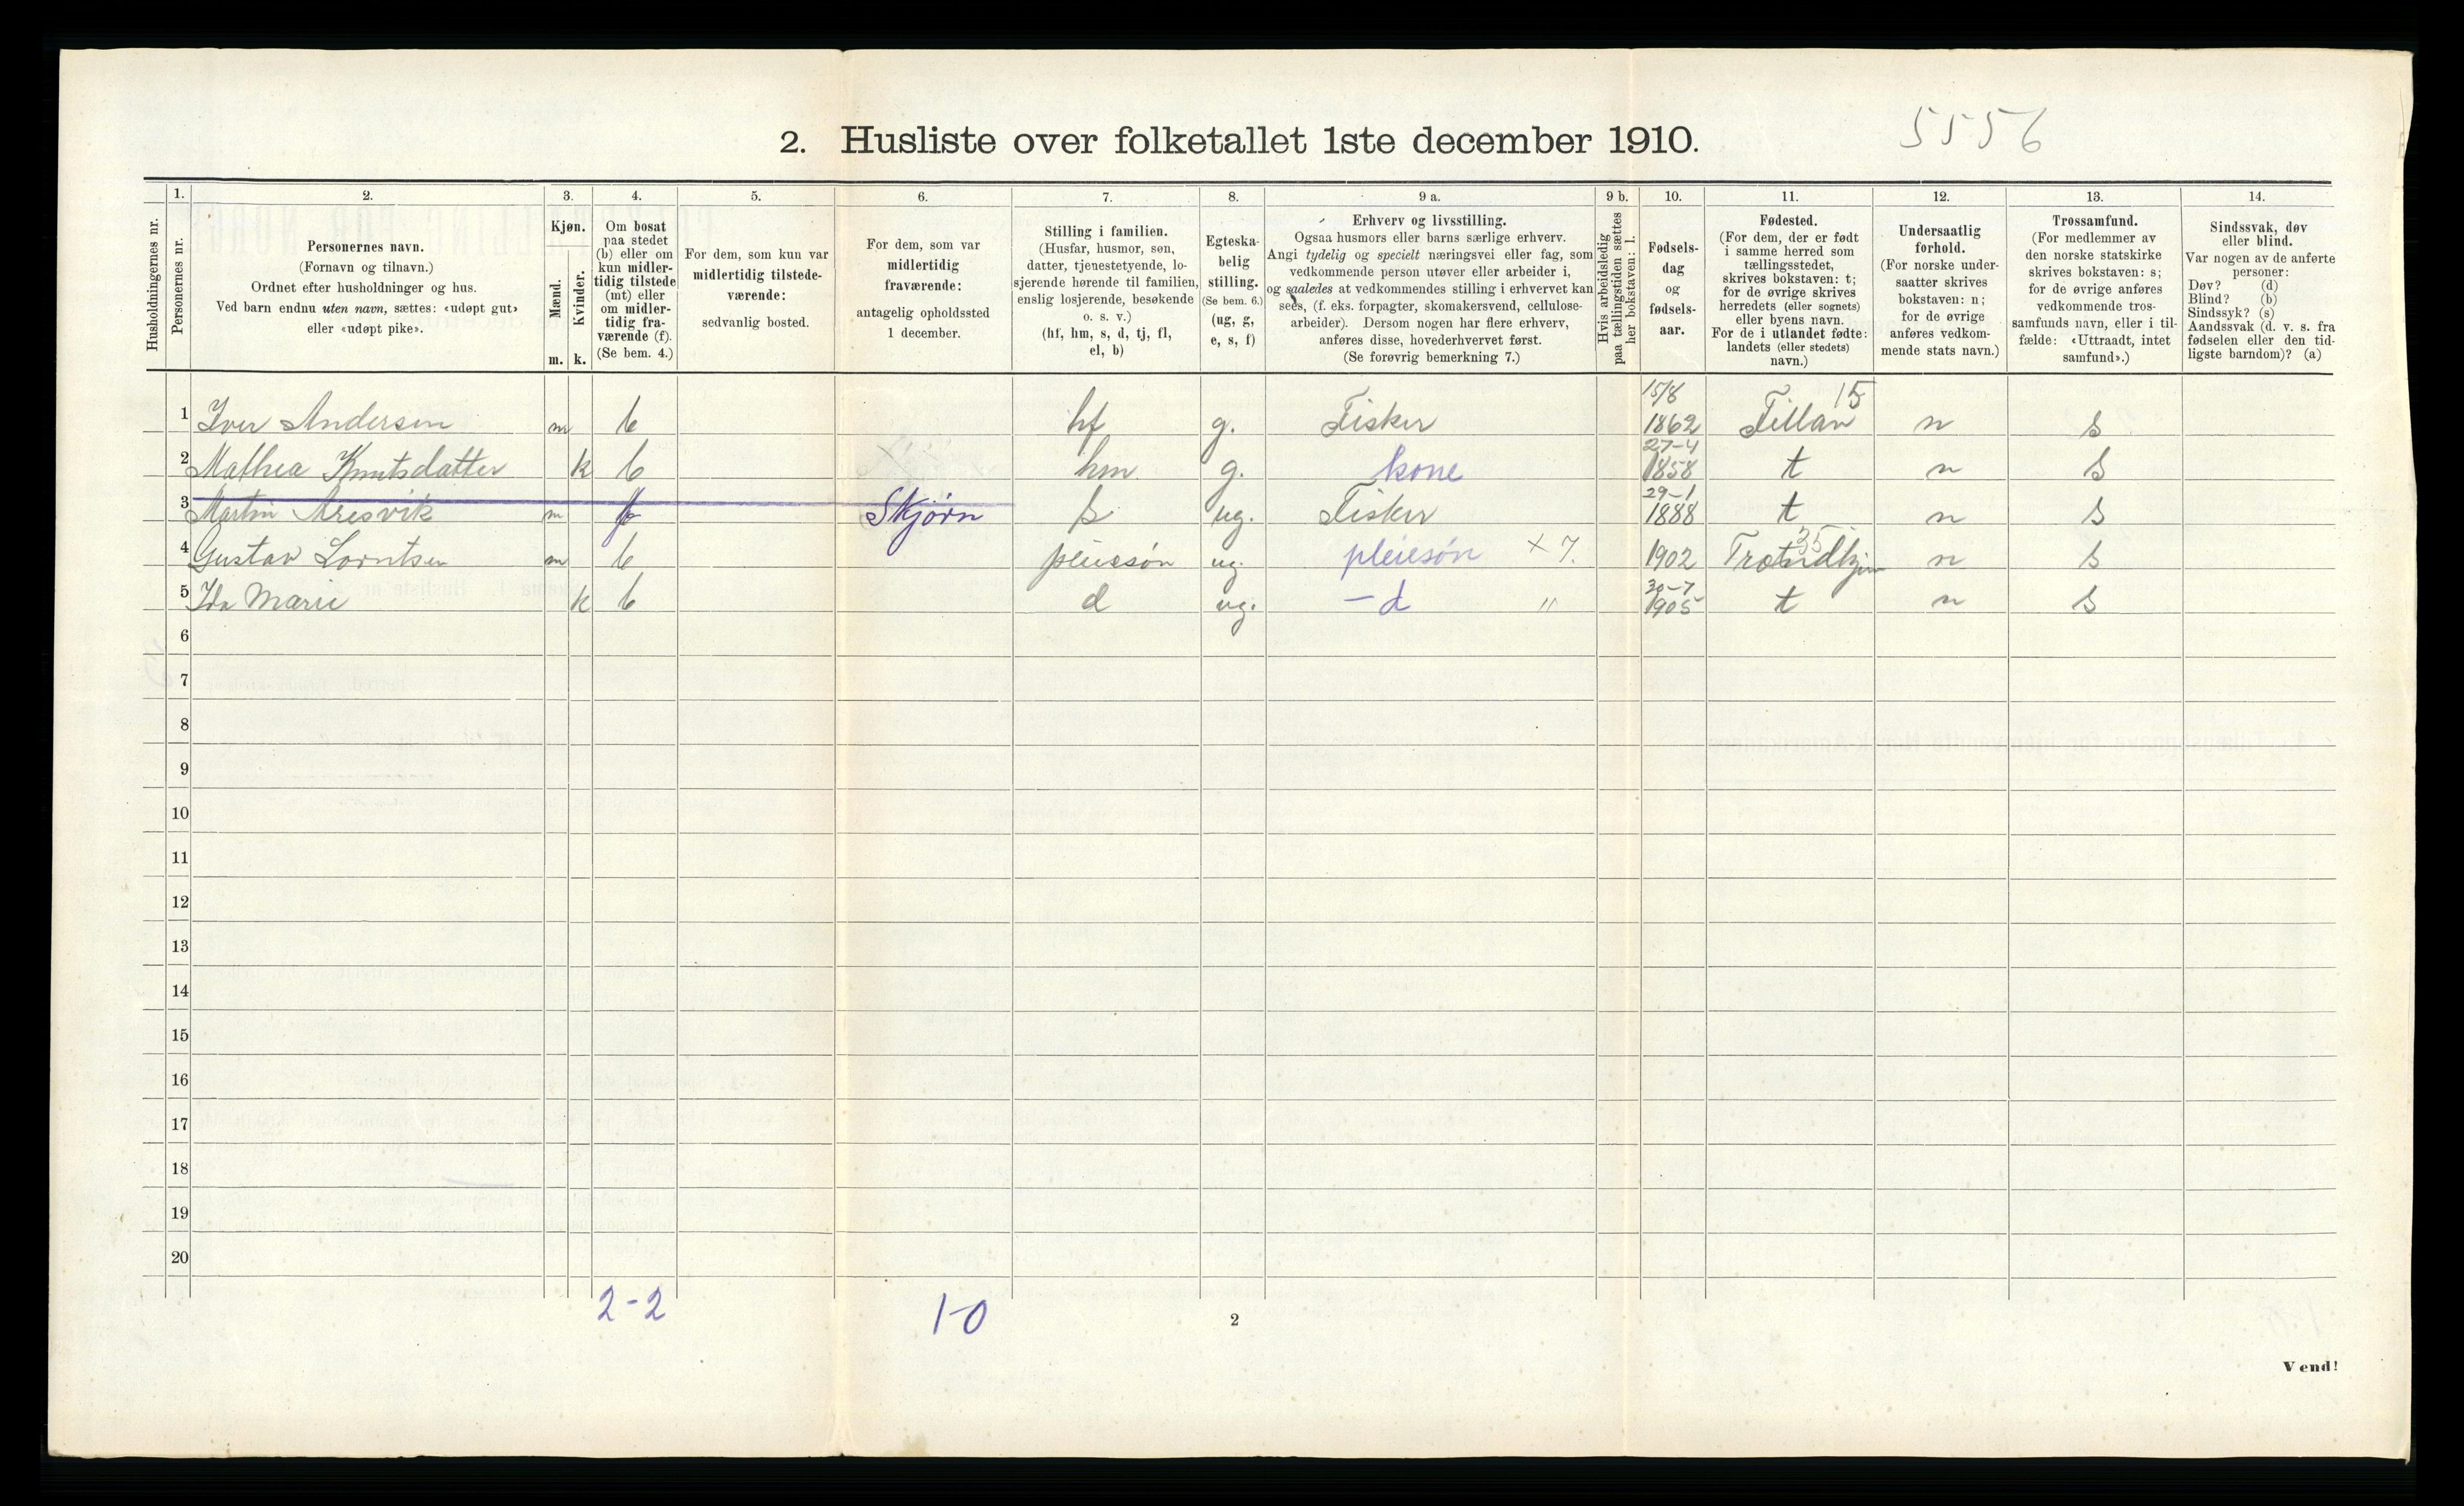 5556
2. Husliste over folketallet 1ste december 1910.
Husholdningernes nr.
1.
Personernes nr.
2.
Personernes navn.
(Fornavn og tilnavn.)
Ordnet efter husholdninger og hus.
Ved barn endnu uten navn, sættes: «udøpt gut»
eller «udøpt pike».
3.
Kjøn.
Mænd.
Kvinder.
m. k.
4.
Om bosat
paa stedet
(b) eller om
kun midler-
tidig tilstede
(mt) eller
om midler-
tidig fra-
værende (f).
(Se bem. 4.)
5.
For dem, som kun var
midlertidig tilstede-
værende:
sedvanlig bosted.
6.
For dem, som var
midlertidig
fraværende:
antagelig opholdssted
1 december.
7.
Stilling i familien.
(Husfar, husmor, søn,
datter, tjenestetyende, lo-
sjerende hørende til familien,
enslig losjerende, besøkende
o. s. v.)
(hf, hm, s, d, tj, fl,
el, b)
8.
Egteska-
belig
stilling.
(Se bem. 6.)
(ug, g,
e, s, f)
9 a.
Erhverv og livsstilling.
Ogsaa husmors eller barns særlige erhverv.
Angi tydelig og specielt næringsvei eller fag, som
vedkommende person utøver eller arbeider i,
og saaledes at vedkommendes stilling i erhvervet kan
sees, (f. eks. forpagter, skomakersvend, cellulose-
arbeider). Dersom nogen har flere erhverv,
anføres disse, hovederhvervet først.
(Se forøvrig bemerkning 7.)
9 b.
Hvis arbeidsledig
paa tællingstiden sættes
her bokstaven: l.
10.
Fødsels-
dag
og
fødsels-
aar.
11.
Fødested.
(For dem, der er født
i samme herred som
tællingsstedet,
skrives bokstaven: t;
for de øvrige skrives
herredets (eller sognets)
eller byens navn.
For de i utlandet fødte:
landets (eller stedets)
navn.)
12.
Undersaatlig
forhold.
(For norske under-
saatter skrives
bokstaven: n;
for de øvrige
anføres vedkom-
mende stats navn.)
13.
Trossamfund.
(For medlemmer av
den norske statskirke
skrives bokstaven: s;
for de øvrige anføres
vedkommende tros-
samfunds navn, eller i til-
fælde: «Uttraadt, intet
samfund».)
14.
Sindssvak, døv
eller blind.
Var nogen av de anførte
personer:
Døv? (d)
Blind? (b)
Sindssyk? (s)
Aandssvak (d. v. s. fra
fødselen eller den tid-
ligste barndom)? (a)
1 Iver Andersen m b hf g. Fisker 15/8 1862 Fillan 15 n s
2 Mathea Knutsdatter k b hm g. kone 27-4 1858 t n s
3 Martin Aresvik m f Skjørn s ug. Fisker 29-1 1888 t n s
4 Gustav Lorntsen m b pleiesøn ug. pleiesøn × 7. 1902 Trondhjem 35 n s
5 Ida Marie k b d ug. - d " 30-7 1905 t n s
6
7
8
9
10
11
12
13
14
15
16
17
18
19
20
2-2
1-0
2
Vend!